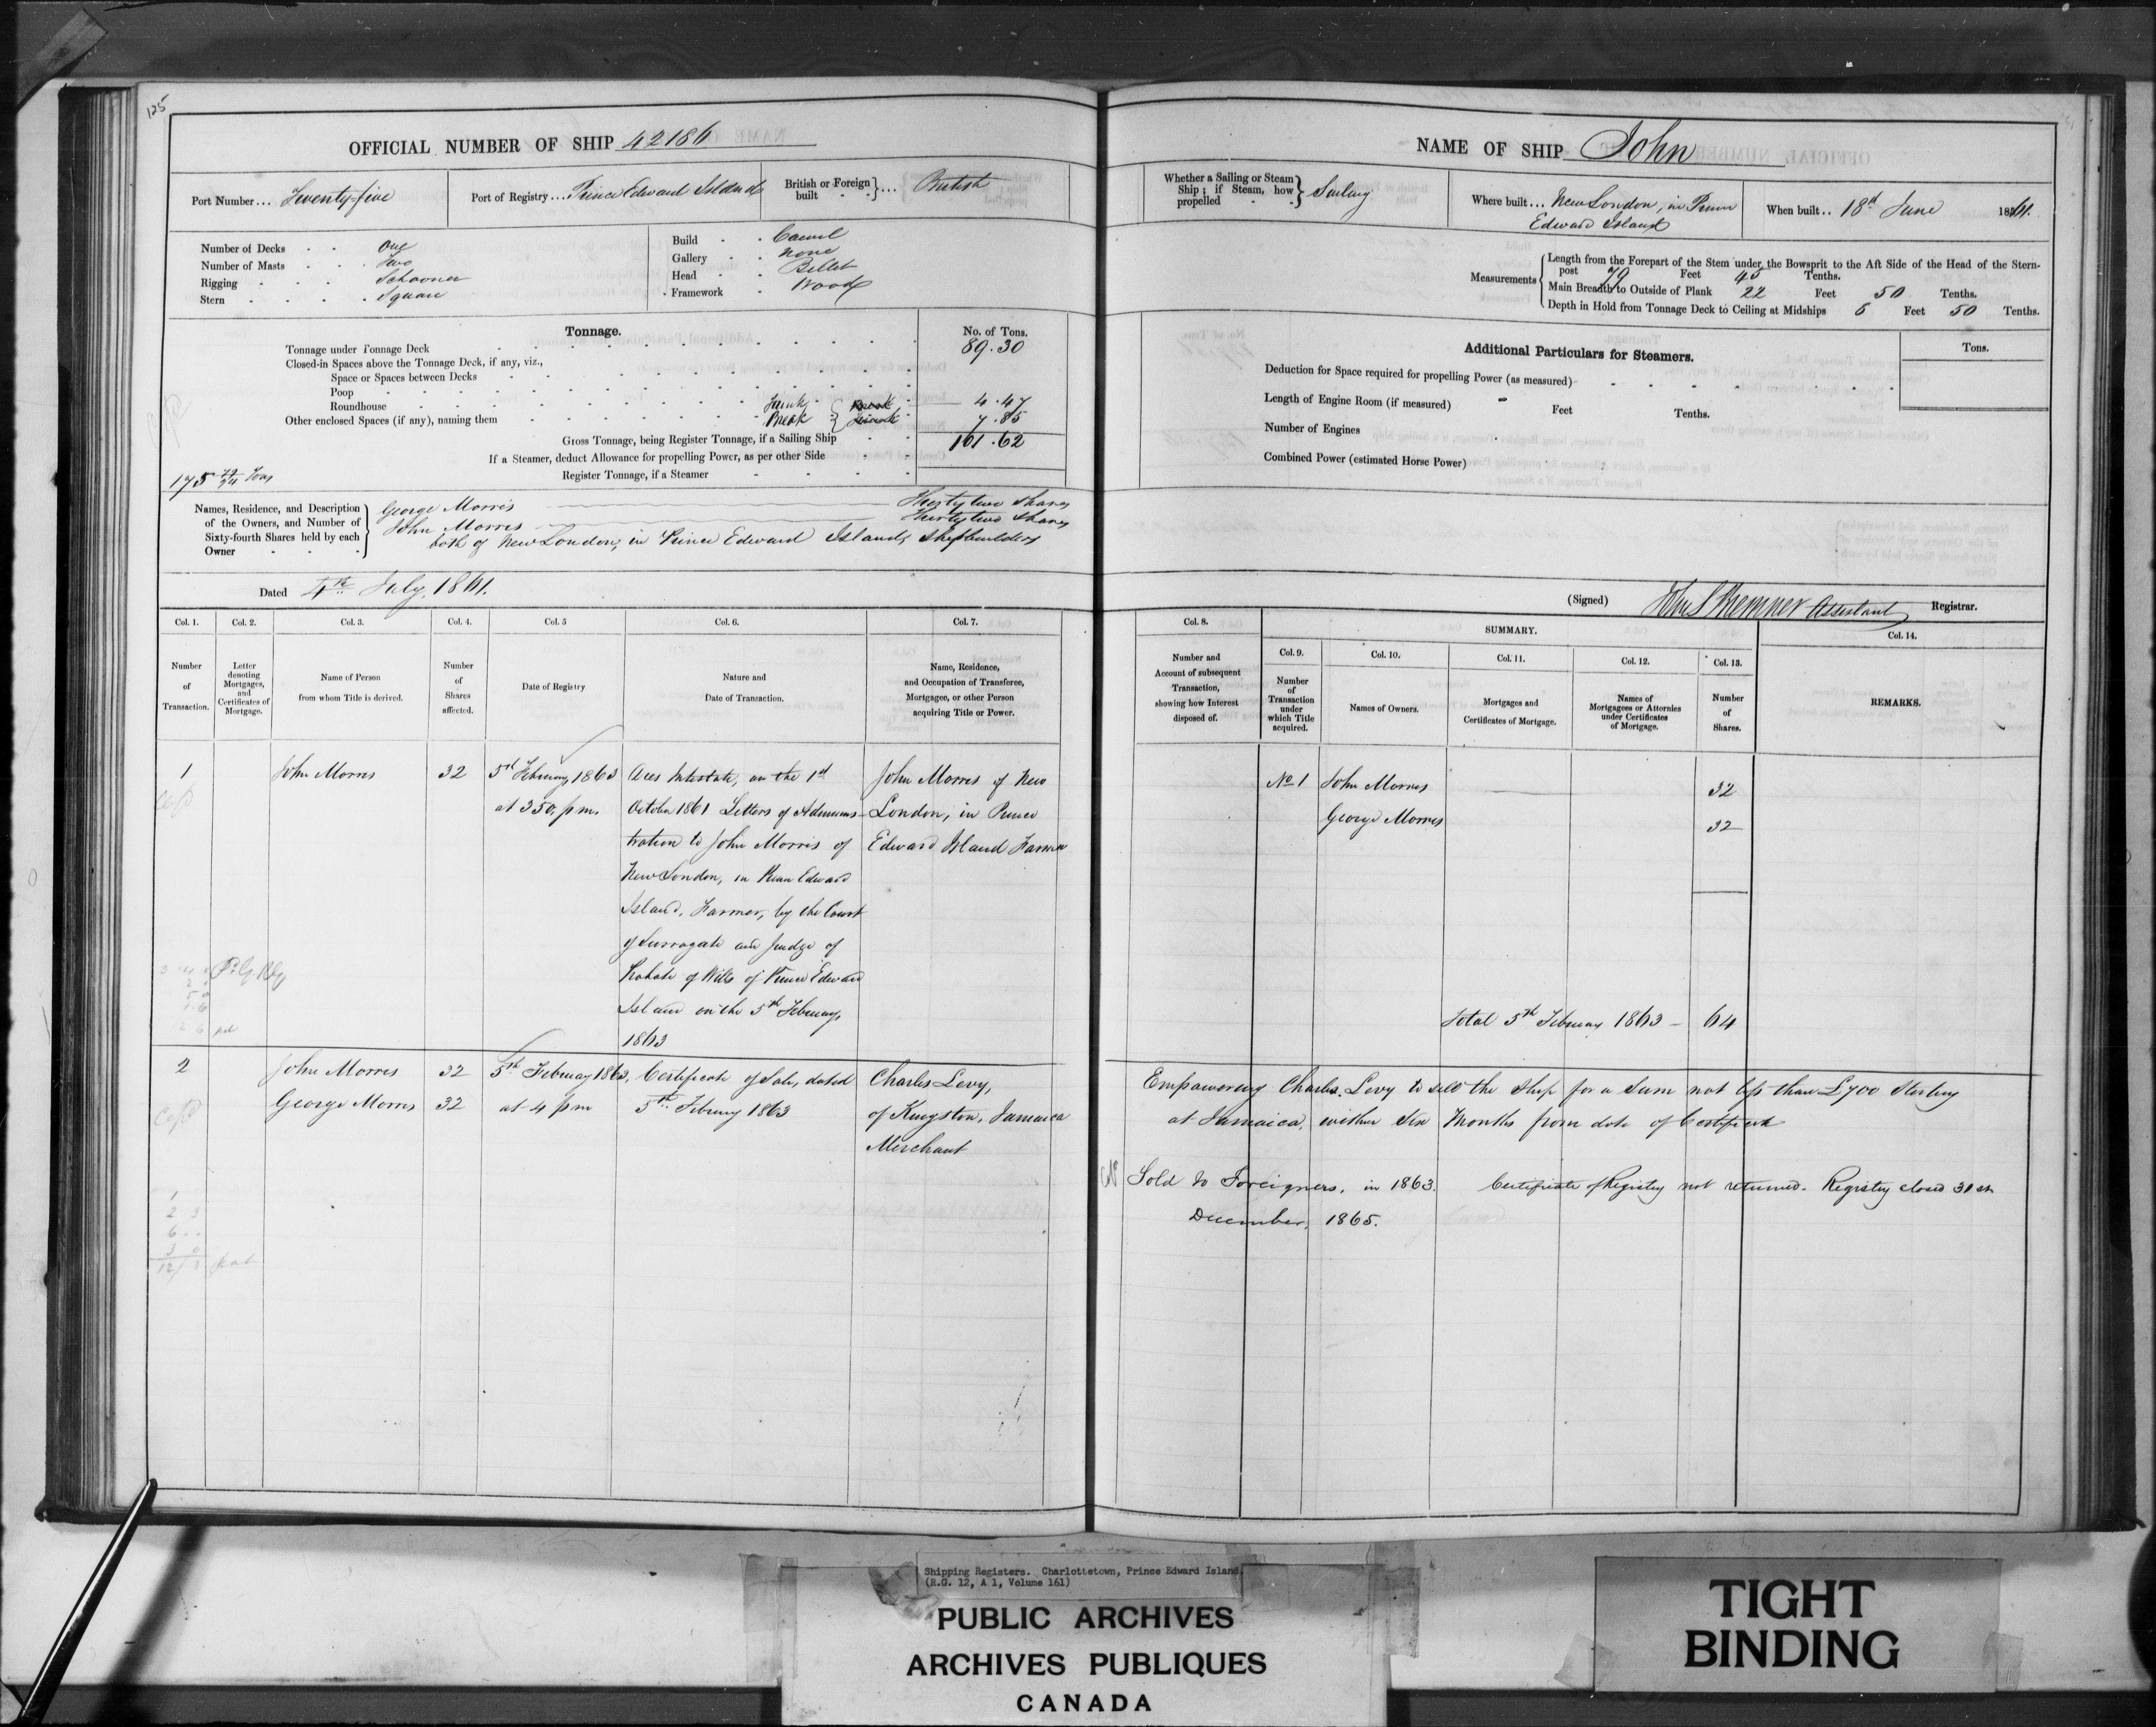 125
OFFICIAL NUMBER OF SHIP 42186
Port Number... Seventy-five
Port of Registry... Prince Edward Island
British or Foreign built - - }... British
Number of Decks - - One
Number of Masts - - Two
Rigging - - - Schooner
Stern - - - - Square
Build - - Carvel
Gallery - - None
Head - - Billet
Framework - Wood
Tonnage.
No. of Tons.
Tonnage under Tonnage Deck 89.30
Closed-in Spaces above the Tonnage Deck, if any, viz.,
Space or Spaces between Decks
Poop
Roundhouse
4.47
Other enclosed Spaces (if any), naming them Break 7.85
Gross Tonnage, being Register Tonnage, if a Sailing Ship 101.62
If a Steamer, deduct Allowance for propelling Power, as per other Side
Register Tonnage, if a Steamer
Names, Residence, and Description of the Owners, and Number of Sixty-fourth Shares held by each Owner
George Morris Thirty two Shares
John Morris Thirty two Shares
both of New London, in Prince Edward Island, Shipbuilders
Dated 4th July, 1861.
Col. 1.
Col. 2.
Col. 3.
Col. 4.
Col. 5
Col. 6.
Col. 7.
Number of Transaction.
Letter denoting Mortgages, and Certificates of Mortgage.
Name of Person from whom Title is derived.
Number of Shares affected.
Date of Registry
Nature and Date of Transaction.
Name, Residence, and Occupation of Transferee, Mortgagee, or other Person acquiring Title or Power.
1
John Morris
32
5th February 1863
at 3 50 p m.
Dies Intestate, on the 1st
October 1861 Letters of Adminis-
tration to John Morris of
New London, in Prince Edward
Island, Farmer, by the Court
of Surrogate and Judge of
Probate of Wills of Prince Edward
Island on the 5th February,
1863
John Morris of New
London, in Prince
Edward Island Farmer
2
John Morris
32
George Morris
32
5th February 1863,
at 4 pm
Certificate of Sale, dated
5th February 1863
Charles Levy,
of Kingston, Jamaica
Merchant
NAME OF SHIP John
Whether a Sailing or Steam Ship; if Steam, how propelled - - } Sailing
Where built... New London, in Prince
Edward Island
When built.. 18th June 1861.
Measurements
Length from the Forepart of the Stem under the Bowsprit to the Aft Side of the Head of the Stern-
post 79 Feet 45 Tenths.
Main Breadth to Outside of Plank 22 Feet 50 Tenths.
Depth in Hold from Tonnage Deck to Ceiling at Midships 6 Feet 50 Tenths.
Additional Particulars for Steamers.
Tons.
Deduction for Space required for propelling Power (as measured)
Length of Engine Room (if measured) - Feet Tenths.
Number of Engines
Combined Power (estimated Horse Power)
(Signed) Assistant Registrar.
Col. 8.
SUMMARY.
Col. 14.
Col. 9.
Col. 10.
Col. 11.
Col. 12.
Col. 13.
Number and Account of subsequent Transaction, showing how Interest disposed of.
Number of Transaction under which Title acquired.
Names of Owners.
Mortgages and Certificates of Mortgage.
Names of Mortgagees or Attornies under Certificates of Mortgage.
Number of Shares.
REMARKS.
No 1 John Morris 32
George Morris 32
Total 5th February 1863 - 64
Empowering Charles Levy to sell the Ship for a Sum not less than £700 Sterling
at Jamaica, within Six Months from date of Certificate
Sold to Foreigners, in 1863. Certificate of Registry not returned. Registry closed 31st
December, 1865.
Shipping Registers. Charlottetown, Prince Edward Island.
(R.G. 12, A 1, Volume 161)
PUBLIC ARCHIVES
ARCHIVES PUBLIQUES
CANADA
TIGHT
BINDING